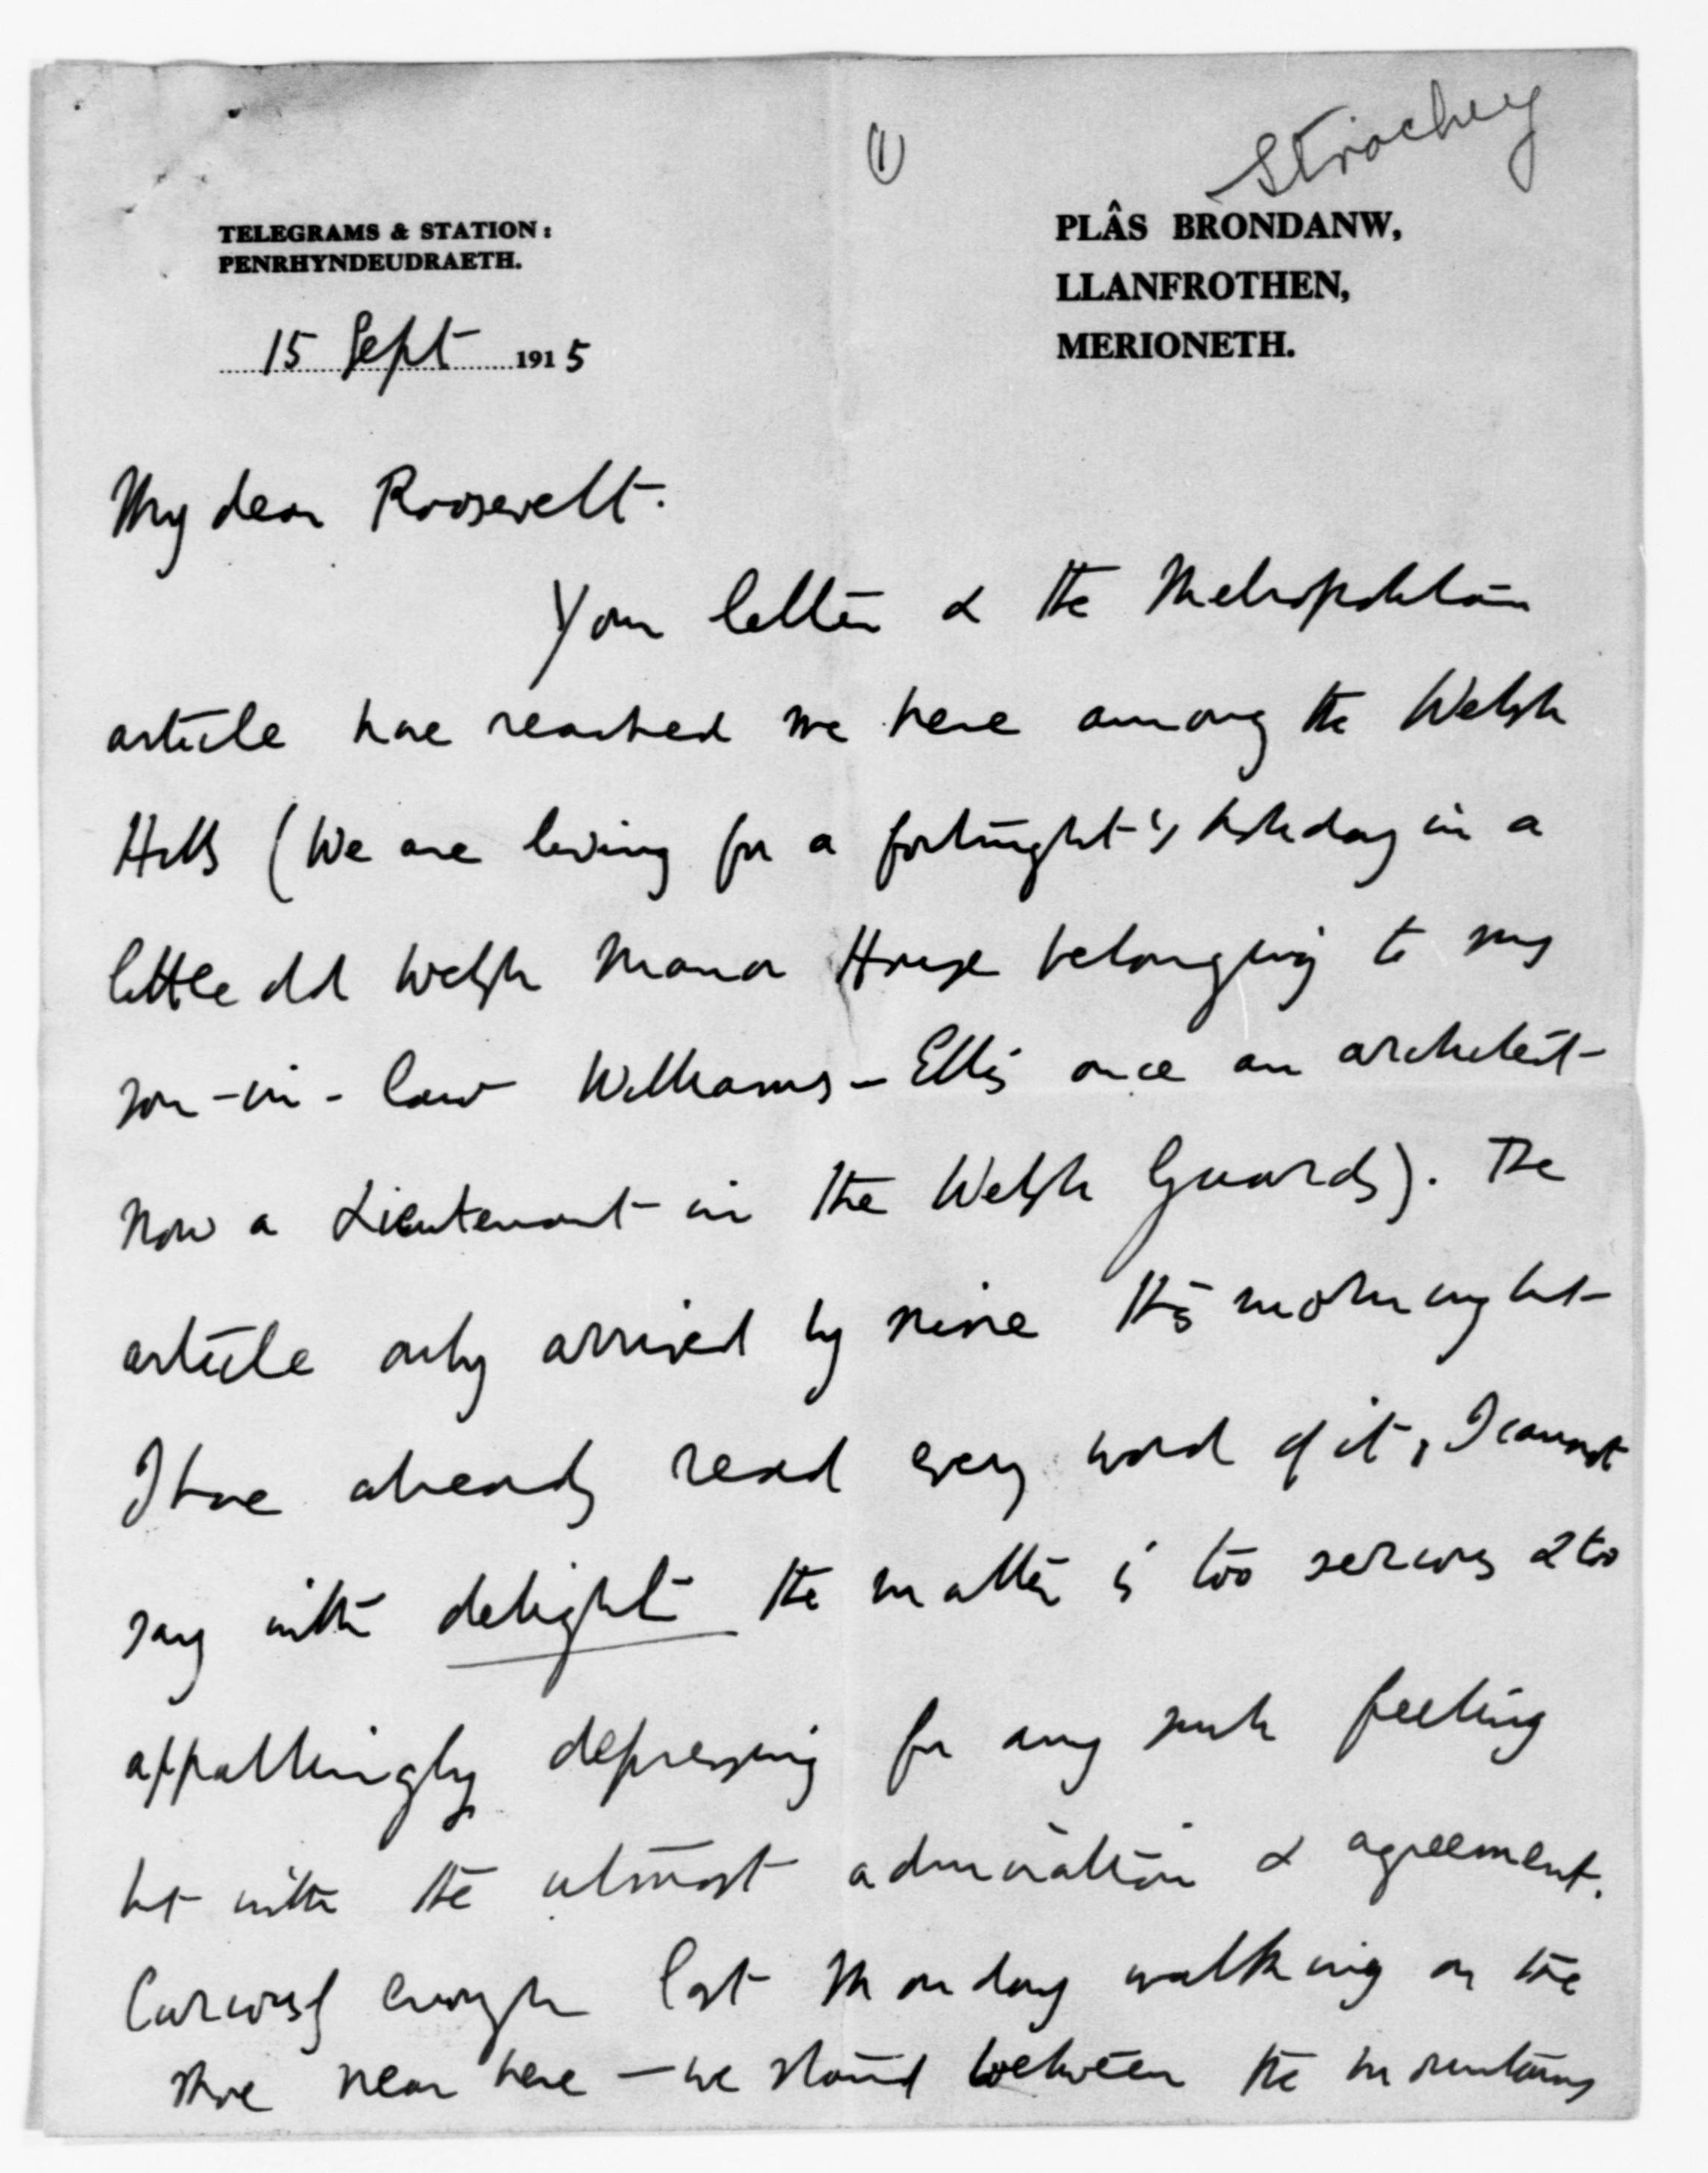 (1)
Strachey
TELEGRAMS & STATION:
PENRHYNDEUDRAETH.
PLÂS BRONDANW,
LLANFROTHEN,
MERIONETH.
15 Sept 1915
My dear Roosevelt.
Your letter & the Metropolitan
article have reached me here among the Welsh
Hills (We are living for a fortnight's holiday in a
little old Welsh Manor House belonging to my
son-in-law Williams-Ellis once an architect
now a Lieutenant in the Welsh Guards). The
article only arrived by nine this morning but
I have already read every word of it, I cannot
say with delight the matter is too serious & too
appallingly depressing for any such feeling
but with the utmost admiration & agreement.
Curiously enough last Monday walking on the
shore near here — we stand between the mountains